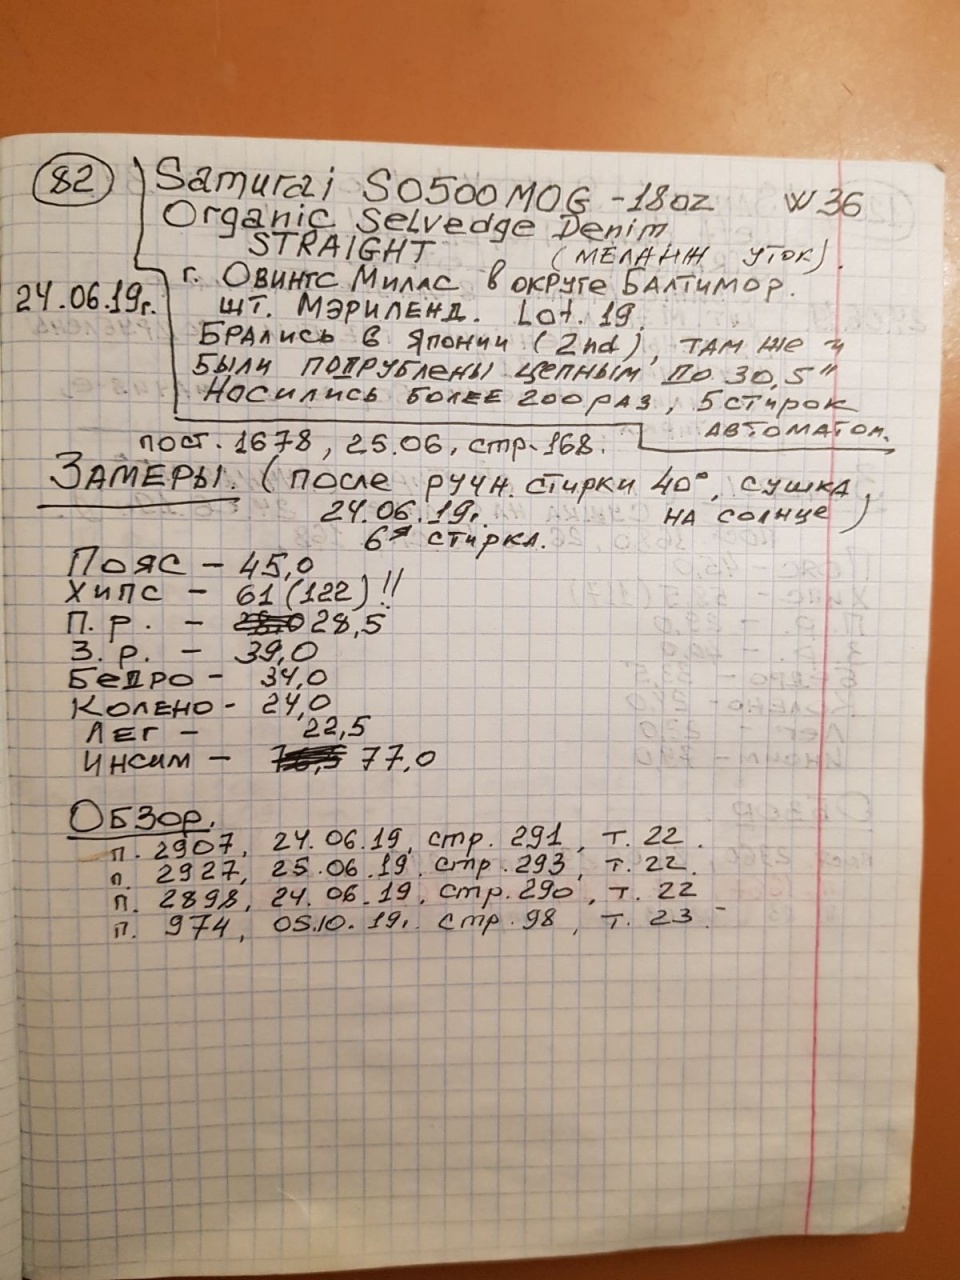 82
Samurai SO500MOG - 18oz W36
Organic Selvedge Denim
STRAIGHT (МЕЛАНЖ УТОК).
24.06.19г.
г. Овингс Миллс в округе Балтимор.
шт. Мэриленд. Lot. 19.
Брались в Японии (2nd), там же и
были подрублены цепным до 30,5"
Носились более 200 раз, 5 стирок
автоматом.
пост. 1678, 25.06, стр. 168.
Замеры. (после ручн. стирки 40°, сушка
24.06.19г. на солнце)
6я стирка.
Пояс - 45,0
Хипс - 61 (122)!!
П.р. - 28,5
З.р. - 39,0
Бедро - 34,0
Колено - 24,0
Лег - 22,5
Инсим - 77,0
Обзор.
п. 2907, 24.06.19, стр. 291, т. 22.
п. 2927, 25.06.19, стр. 293, т. 22.
п. 2898, 24.06.19, стр. 290, т. 22
п. 974, 05.10.19г. стр. 98, т. 23.